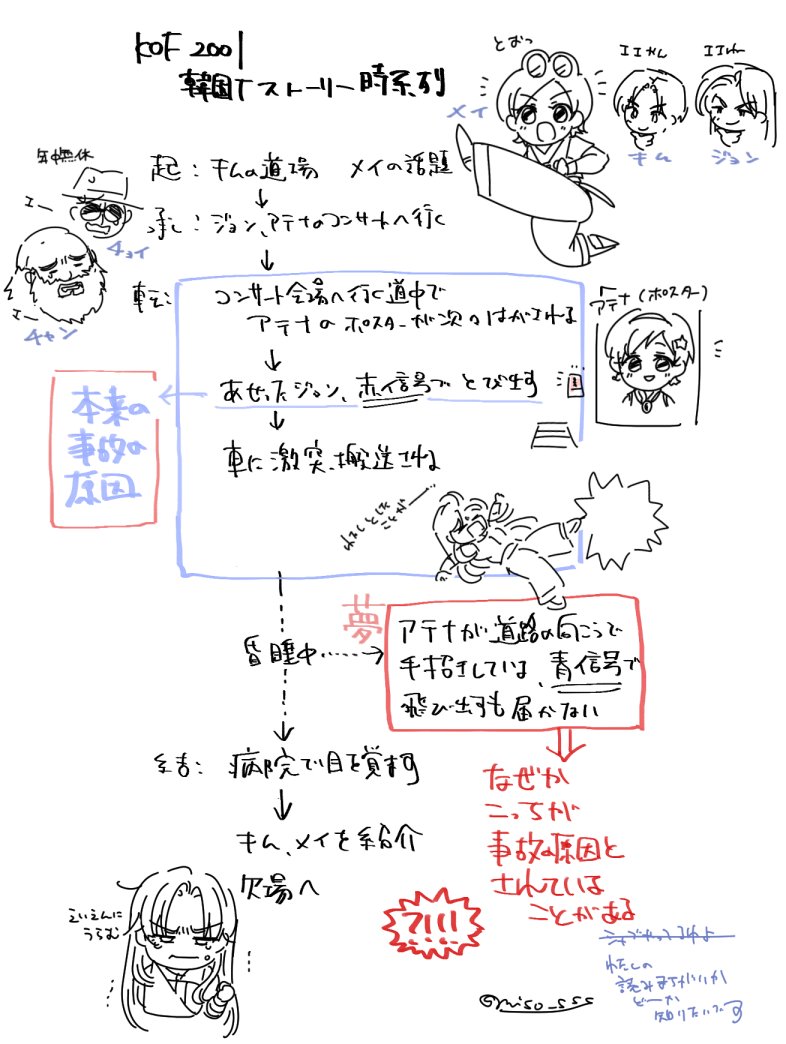 KOF 2001
韓国Tストーリー時系列
とおっ
メイ
IIかん
キム
IIかん
ジョン
年中無休
エー
チョイ
エー
チャン
起：キムの道場 メイの話題
↓
承：ジョン、アテナのコンサートへ行く
↓
転：コンサート会場へ行く道中で
アテナのポスターが次々はがされる
↓
あせったジョン、赤信号でとび出す
↓
車に激突、搬送される
アテナ(ポスター)
本来の
事故の
原因
わたしとした
ことが
昏睡中
夢
アテナが道路の向こうで
手招きしている、青信号で
飛び出すも届かない
なぜか
こっちが
事故の原因と
されている
ことがある
結：病院で目を覚ます
↓
キム、メイを紹介
欠場へ
えいえんに
うらむ
?!!!
@miso_sss
わたしの
読みまちがいか
どーか
知りたいです